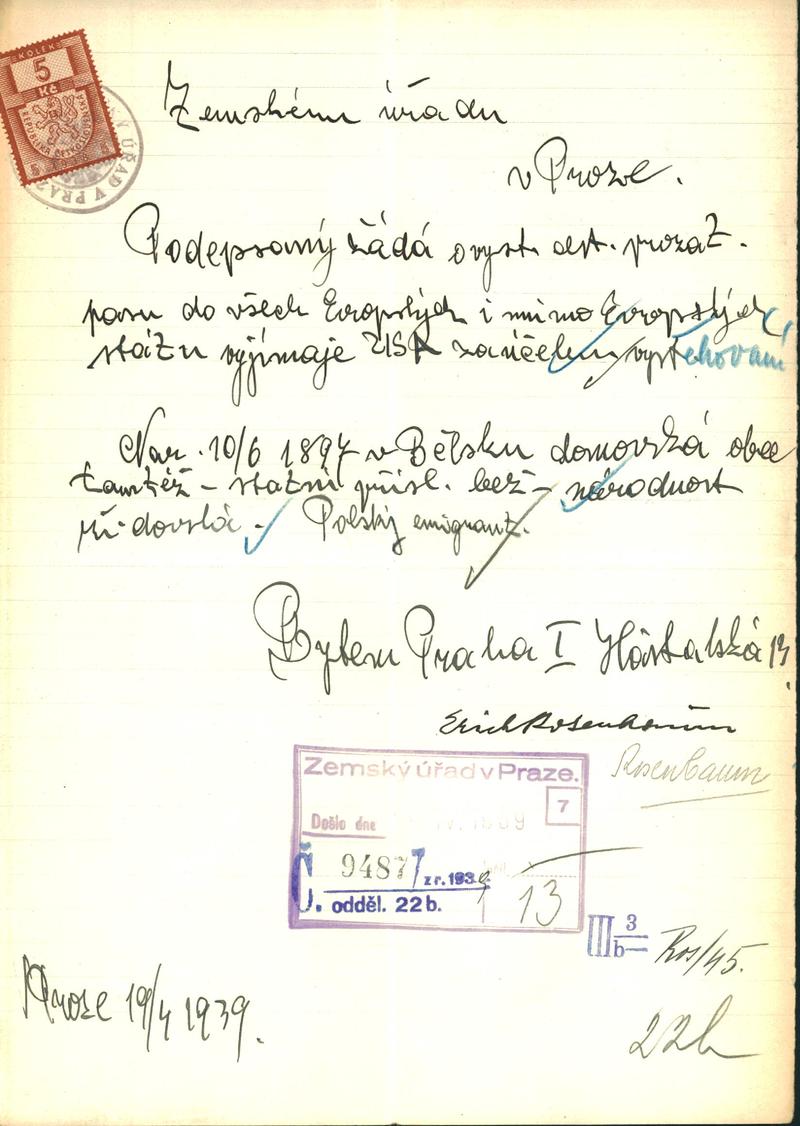 KOLEK
5
Kč
REPUBLIKA ČESKOSLOVENSKÁ
ÚŘAD V PRAZE
Zemskému úřadu
v Praze.
Podepsaný žádá o vyst. cest. prozaZ.
pasu do všech Evropských i mimo Evropských
stáZu vyjímaje USA za účelem vystěhovaní
Nar. 10/6 1897 v Bělsku domovská obec
tamtéž – statni přísl. bež – národnost
židovská – Polský emigrant.
Bytem Praha I Háštalská 13
Erich Rosenbaum
Rosenbaum
Zemský úřad v Praze.
7
Došlo dne IV. 1939
Č. 94877 z r. 1939
J. odděl. 22b. 13
III 3/b– Ros/45.
Praze 19/4 1939.
22b